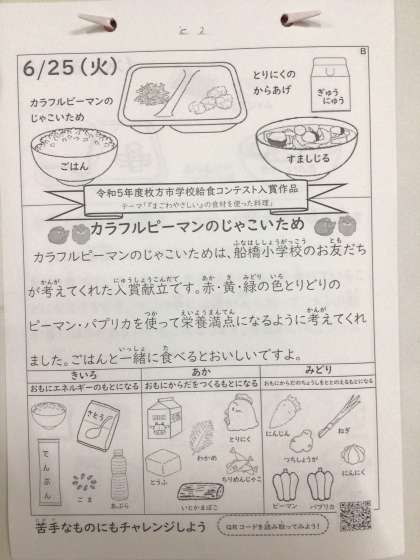 c 2
B
6/25(火)
とりにくの
からあげ
ぎゅう
にゅう
カラフルピーマンの
じゃこいため
ごはん
すましじる
令和5年度枚方市学校給食コンテスト入賞作品
テーマ「『まごわやさしい』の食材を使った料理」
カラフルピーマンのじゃこいため
ふなはししょうがっこう とも
カラフルピーマンのじゃこいためは、船橋小学校のお友だち
かんが にゅうしょうこんだて あか き みどり いろ
が考えてくれた入賞献立です。赤・黄・緑の色とりどりの
つか えいようまんてん かんが
ピーマン・パプリカを使って栄養満点になるように考えてくれ
いっしょ た
ました。ごはんと一緒に食べるとおいしいですよ。
きいろ
あか
みどり
おもにエネルギーのもとになる
おもにからだをつくるもとになる
おもにからだのちょうしをととのえるもとになる
さとう
でんぷん
ごま
あぶら
わかめ
とりにく
とうふ
ちりめんじゃこ
いとかまぼこ
にんじん
ねぎ
つちしょうが
にんにく
ピーマン
パプリカ
にがて
苦手なものにもチャレンジしよう
QRコードを読み取ってみよう!